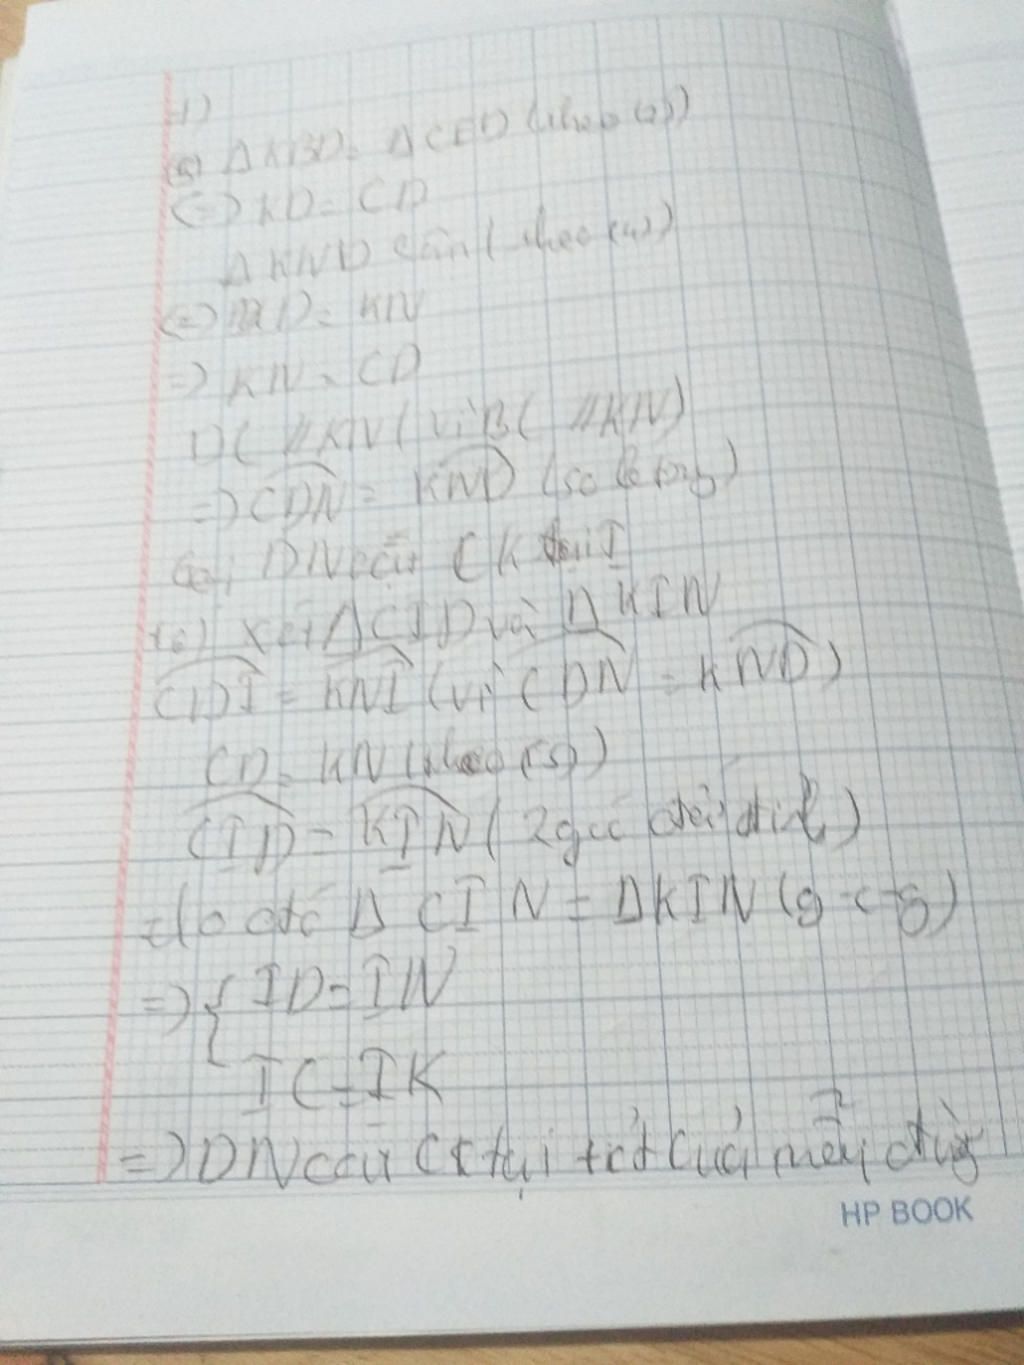 1)
(5) Δ KBD = Δ CED (theo (2))
(=) KD = CD
Δ KND cân (theo (4))
(=) KD = KN
=) KN = CD
DC // KN (vì BC // KN)
=) CDN = KND (so le trong)
Gọi DN cắt CK tại I
(6) Xét Δ CID và Δ KIN
CDI = KNI (vì CDN = KND)
CD = KN (theo (5))
CID = KIN (2 góc đối đỉnh)
Do đó Δ CIN = Δ KIN (g-c-g)
=) { ID = IN
IC = IK
=) DN cắt CK tại t.đ của mỗi đường
HP BOOK